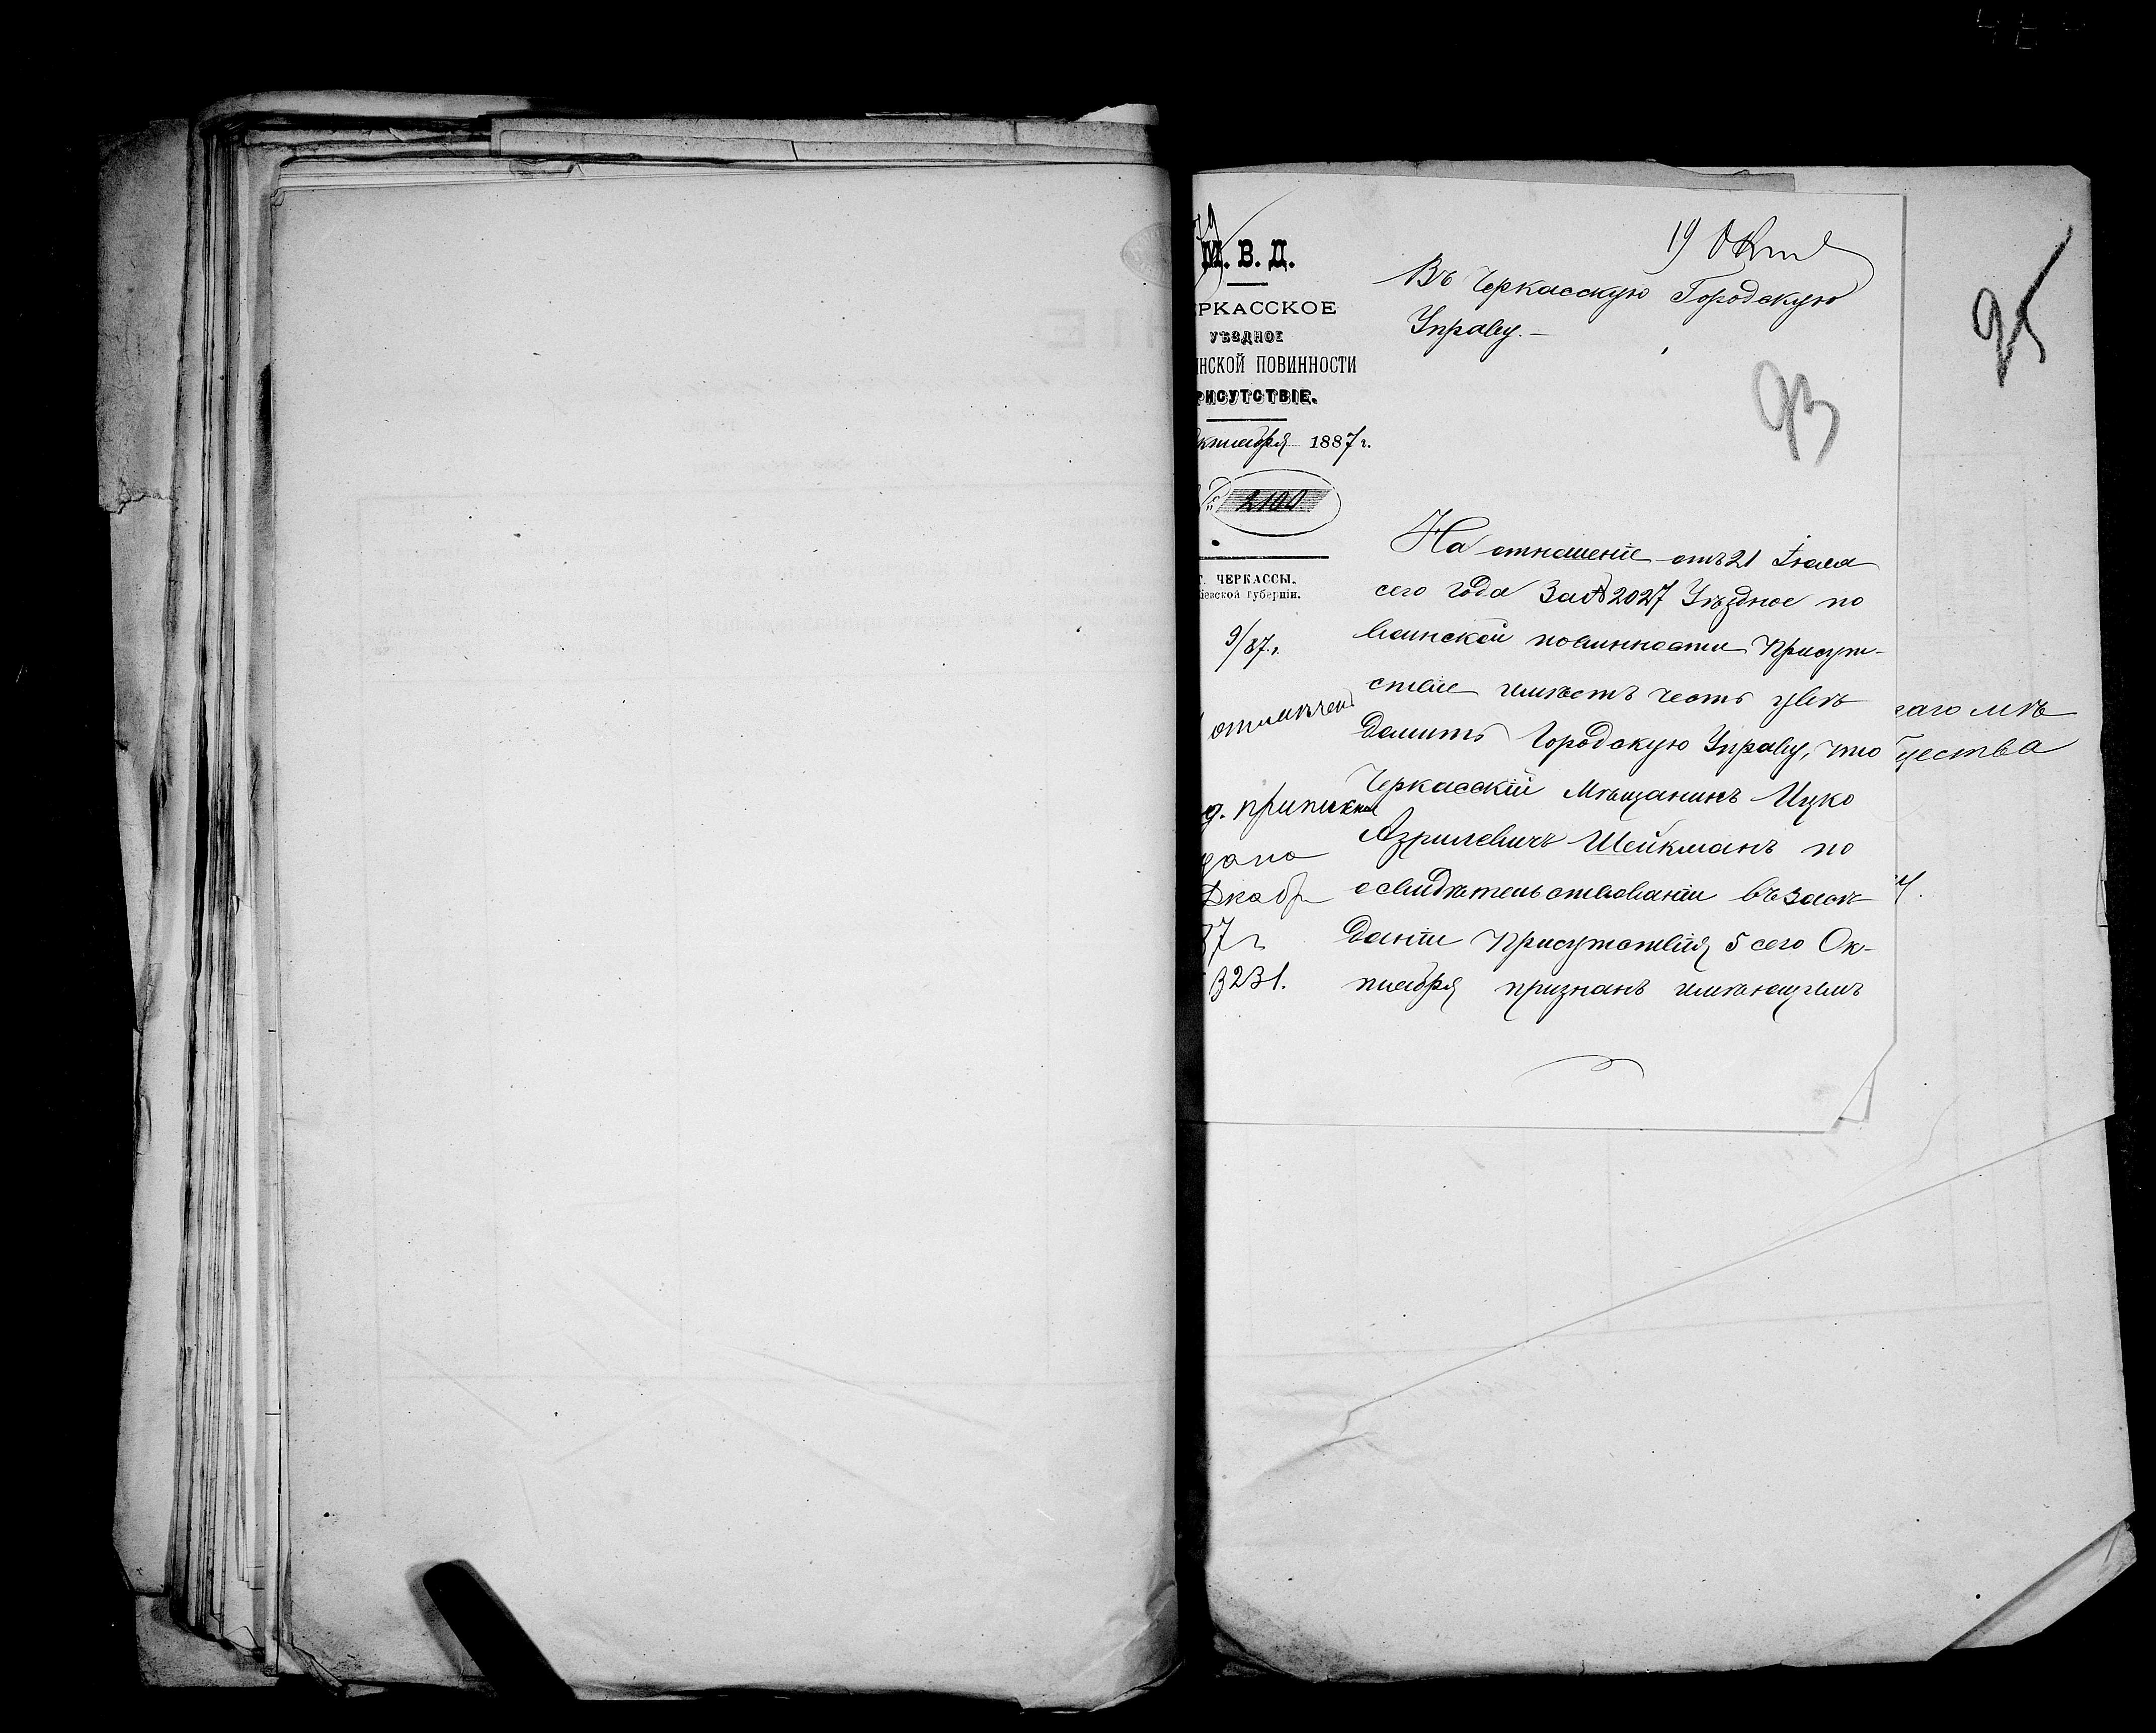 19 Окт
М. В. Д.
РКАССКОЕ
УѢЗДНОЕ
ИНСКОЙ ПОВИННОСТИ
РИСУТСТВІЕ.
ктября 1887 г.
№ 2100.
г. ЧЕРКАССЫ.
іевской губерніи.
9/87 г.
отмѣчен
приписки
Дкабр
87 г
3231.
Въ Черкасскую Городскую
Управу.—
93
95
На отношеніе отъ 21 Іюля
сего года За № 2027 Уѣздное по
воинской повинности Присут-
ствіе имѣетъ честь увѣ
домить Городскую Управу, что
Черкасскій Мѣщанинъ Ицко
Азрилевичъ Шейкманъ по
освидѣтельствованіи въ засѣ
даніи Присутствія 5 сего Ок-
тября признанъ имѣющимъ
аго мѣ
щества